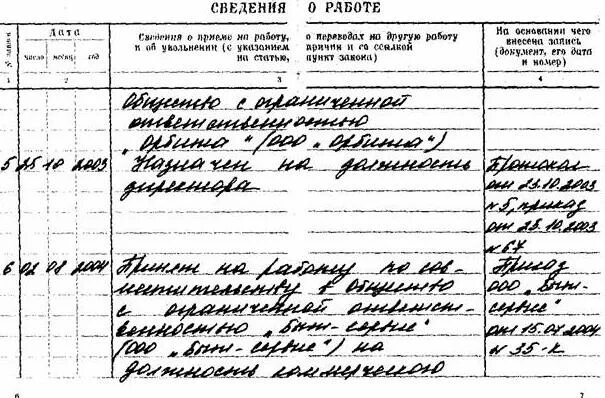 СВЕДЕНИЯ О РАБОТЕ
№ записи
Дата
число месяц год
Сведения о приеме на работу, о переводах на другую работу
и об увольнении (с указанием причин и со ссылкой
на статью, пункт закона)
На основании чего
внесена запись
(документ, его дата
и номер)
1 2 3 4
Общество с ограниченной
ответственностью
„Орбита" (ООО „Орбита")
5 25 10 2003 Назначен на должность
директора
Протокол
от 23.10.2003
№5, приказ
от 25.10.2003
№67
6 02 08 2004 Принят на работу по сов-
местительству в Общество
с ограниченной ответст-
венностью „Быт-сервис"
(ООО „Быт-сервис") на
должность коммерческого
Приказ
ООО „Быт-
сервис"
№35-к
6 7